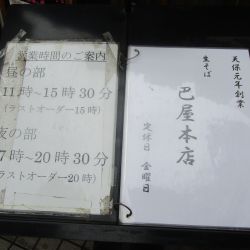 営業時間のご案内
昼の部
11時~15時30分
(ラストオーダー15時)
夜の部
17時~20時30分
(ラストオーダー20時)
天保元年創業
生そば
巴屋本店
定休日 金曜日